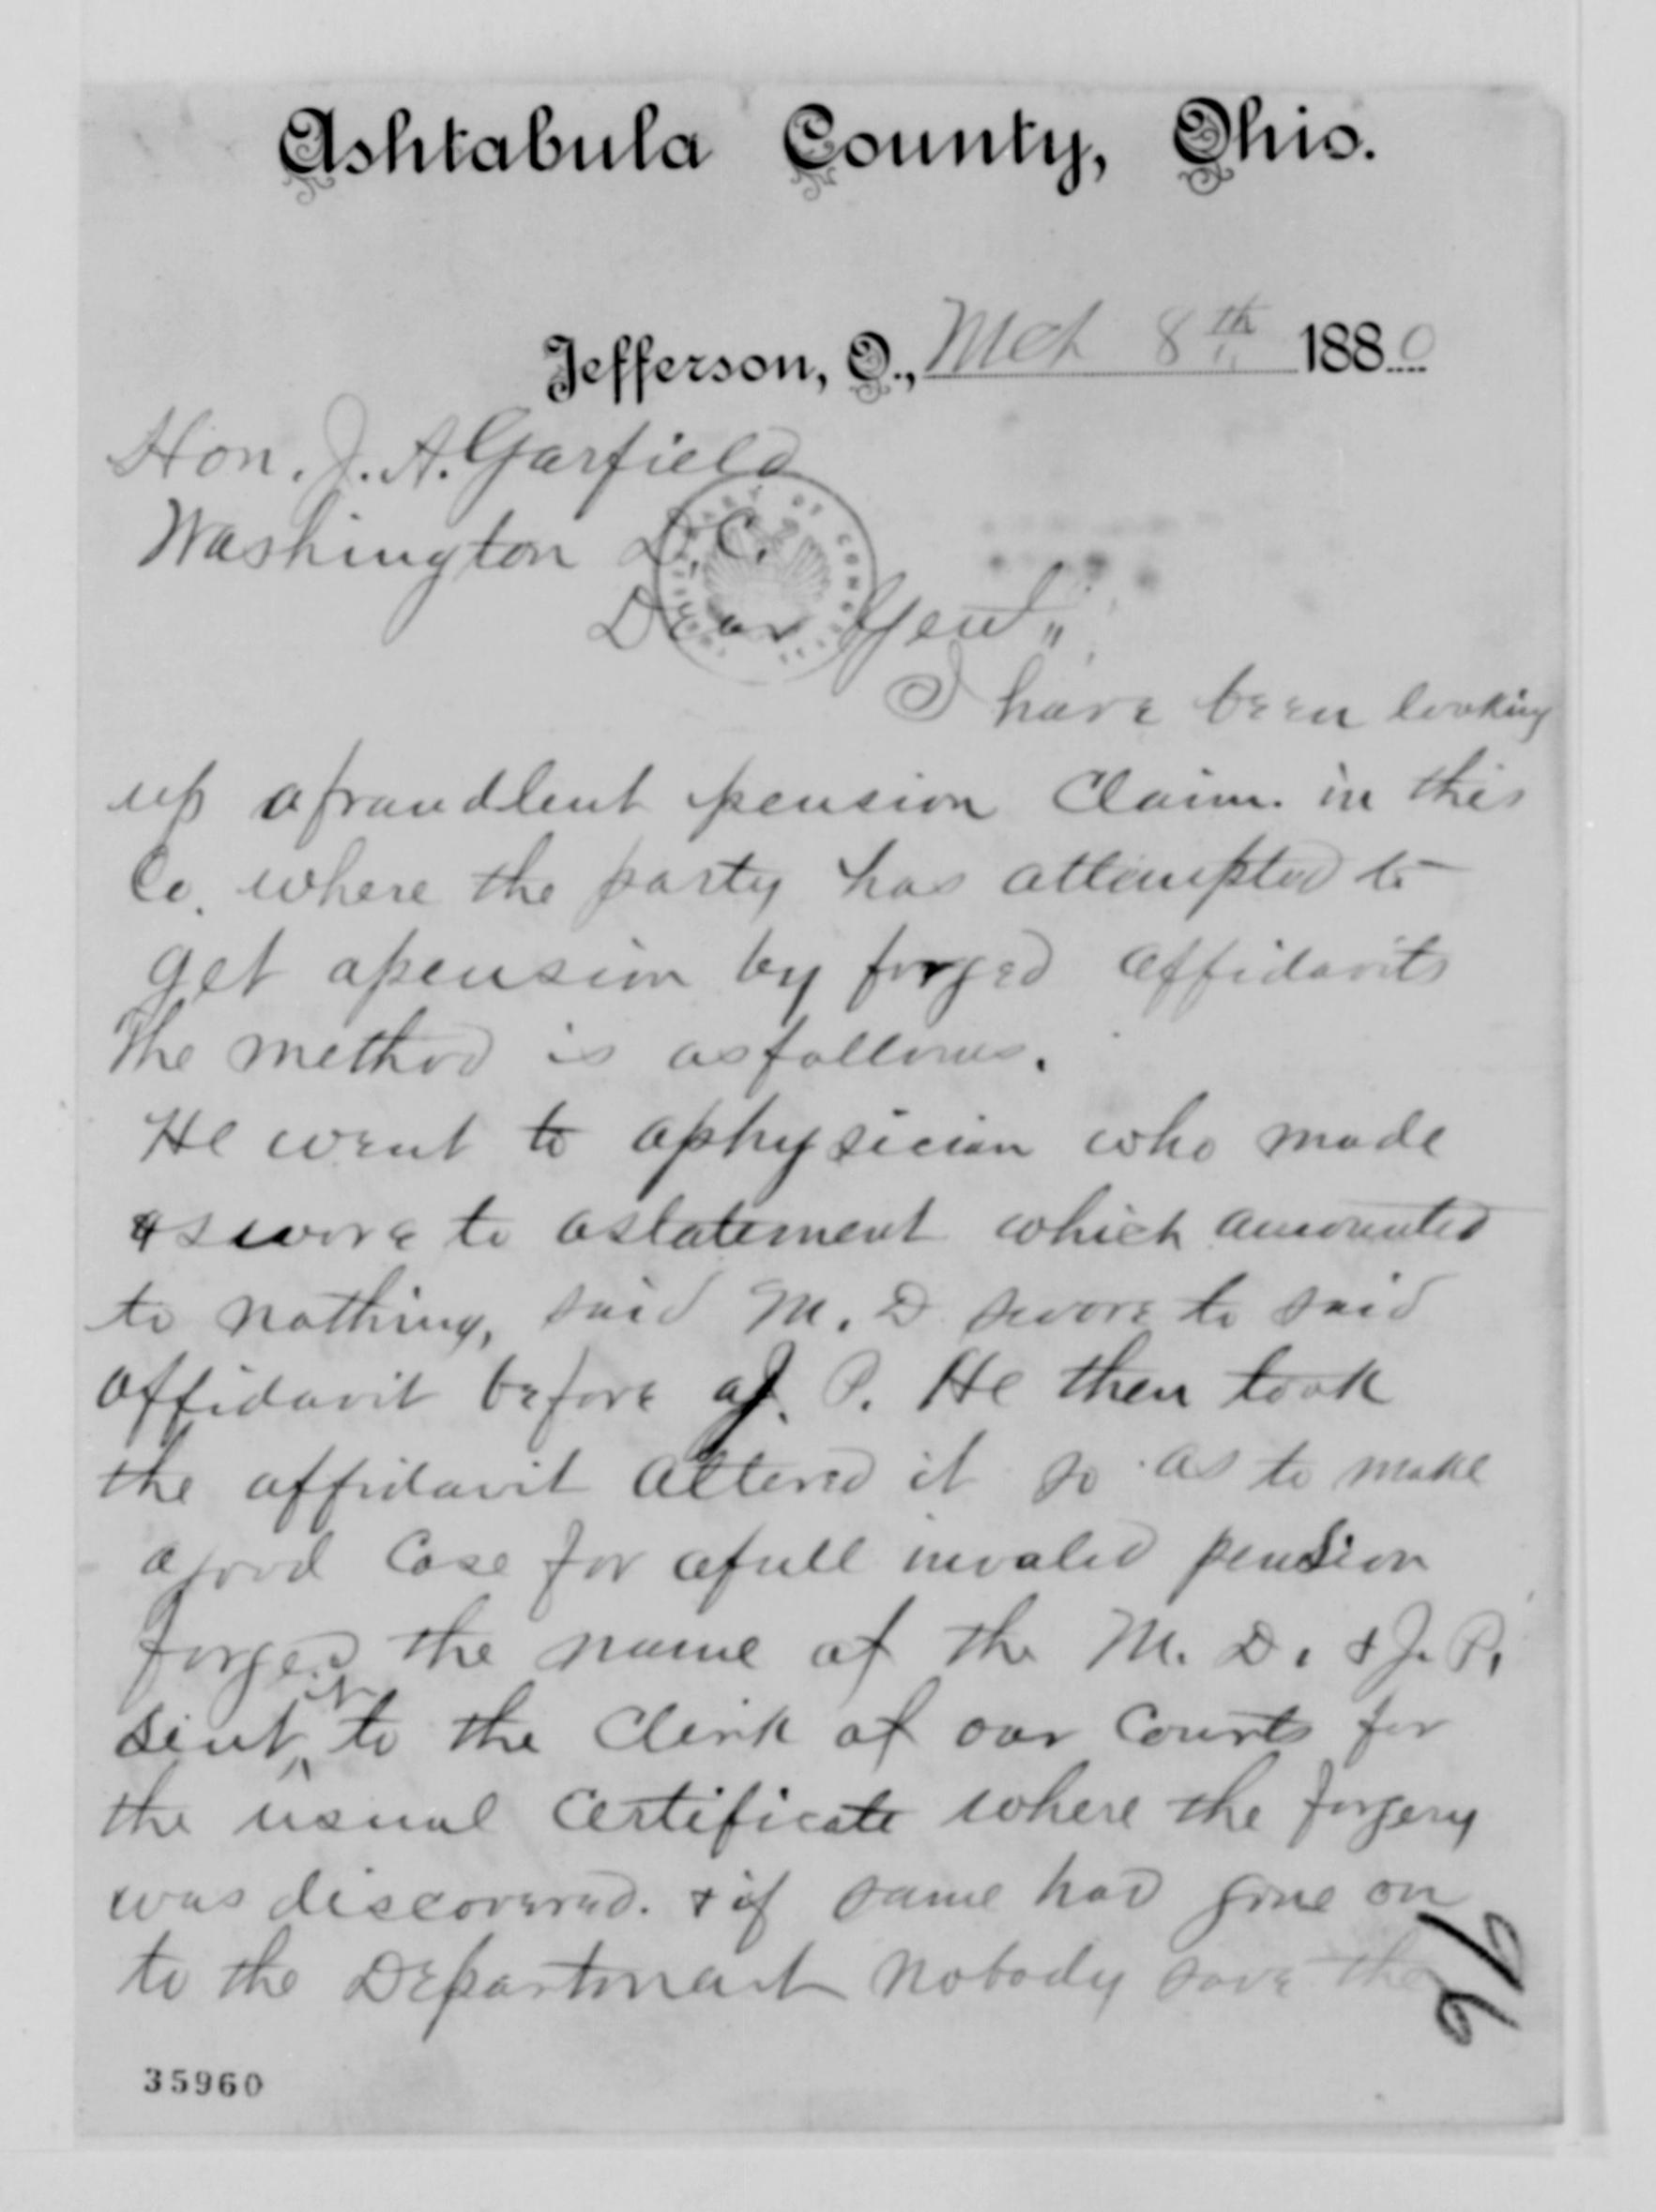 Ashtabula County, Ohio.
Jefferson, O., Mch 8th 1880
Hon. J. A. Garfield
Washington D.C.
Dear Genl,,
I have been looking
up a fraudlent pension Claim. in this
Co. where the party has attempted to
get a pension by forged affidavits
The method is as follows.
He went to a physician who made
& swore to a statement which amounted
to nothing, said M. D swore to said
affidavit before a J. P. He then took
the affidavit altered it so as to make
a good Case for a full invalid pension
forged the name of the M. D. & J. P.
sent it to the Clerk of our Courts for
the usual Certificate where the forgery
was discovered. & if same had gone on
to the Department nobody save the
96
35960